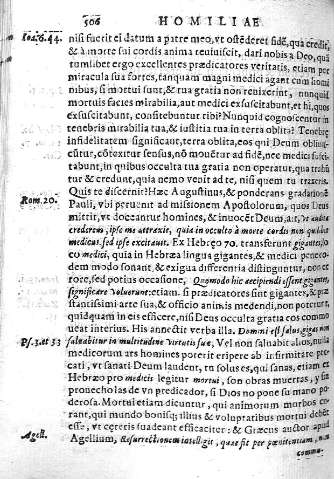 506 HOMILIAE
Ioa. 6. 44. nisi fuerit ei datum a patre meo, vt ostēderet fidē, qua credit,
& à morte sui cordis anima reuiuiscit, dari nobis a Deo, quā
tumlibet ergo excellentes prædicatores veritatis, etiam per
miracula sua fortes, tanquam magni medici agant cum homi
nibus, si mortui sunt, & tua gratia non reuixerint, nunquid
mortuis facies mirabilia, aut medici exsuscitabunt, et hi, quos
exsuscitabunt, confitebuntur tibi? Nunquid cognoscentur in
tenebris mirabilia tua, & iustitia tua in terra oblita? Tenebræ
infidelitatem significant, terra oblita, eos qui Deum obliui-
scūtur, cōtexitur sensus, nō mouētur ad fidē, nec medici susci-
tabunt, in quibus occulta tua gratia non operatur, qua trahū
tur & credunt, quia nemo venit ad te, nisi quem tu traxeris.
Quis te discernit? Hæc Augustinus, & ponderans
Rom. 20. Pauli, vbi peruenit ad missionem Apostolorum, quos Deus
mittit, vt doceant homines, & inuocēt Deum, ait,
crederem, ipse me attraxit, quia in occulto à morte cordis non quilibet
medicus, sed ipse excitauit. Ex Hebręo 70. transferunt gigantes,
co medici, quia in Hebræa lingua gigantes, & medici penè eo-
dem modo sonant, & exigua differentia distinguntur, non er
rore, sed potius occasione, Quomodo hic accipiendi essent gigantes,
significare voluerunt: etiam si prædicatores sint gigantes, & præ
stantissimi arte sua, & officio animis medendi, non poterunt,
quidquam in eis efficere, nisi Deus occulta gratia eos commo
ueat interius. His annectit verba illa. Domini est salus, gigas non
Ps. 3. at 32 saluabitur in multitudine virtutis suæ, Vel non saluabit alios, nulla
medicorum ars homines poterit eripere ab infirmitate pec-
cati, vt sanati Deum laudent, tu solus es, qui sanas, etiam ex
Hebræo pro medicis legitur mortui, son obras muertas, y sin
prouecho las de vn predicador, si Dios no pone su mano po-
derosa. Mortui etiam dicuntur, qui animorum morbos cu-
rant, qui mundo bonisq; illius & voluptatibus mortui debēt
esse, vt cęteris suadeant efficaciter: & Græcus auctor apud
Agell. Agellium, Resurrectionem intellegit, quæ fit per pœnitentiam, non
commu-